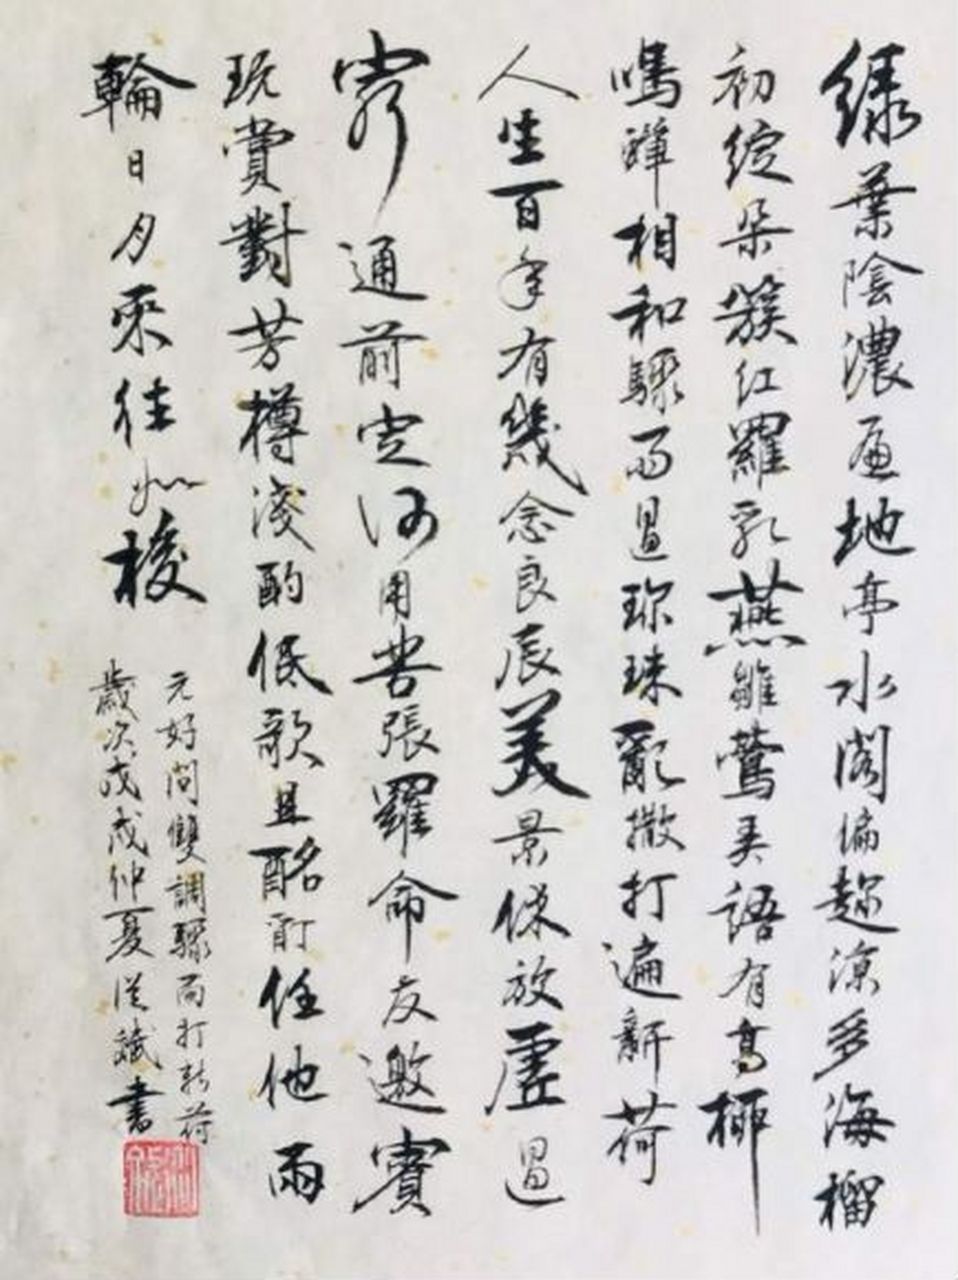 綠葉陰濃遍地亭水閣偏趁涼多海榴
初綻朵簇紅羅乳燕雛鶯弄語有高柳
鳴蟬相和驟雨過珍珠亂撒打遍新荷
人生百年有幾念良辰美景休放虛過
窮通前定何用苦張羅命友邀賓
玩賞對芳樽淺酌低歌且酩酊任他兩
輪日月來往如梭
元好問雙調驟雨打新荷
歲次戊戌仲夏書